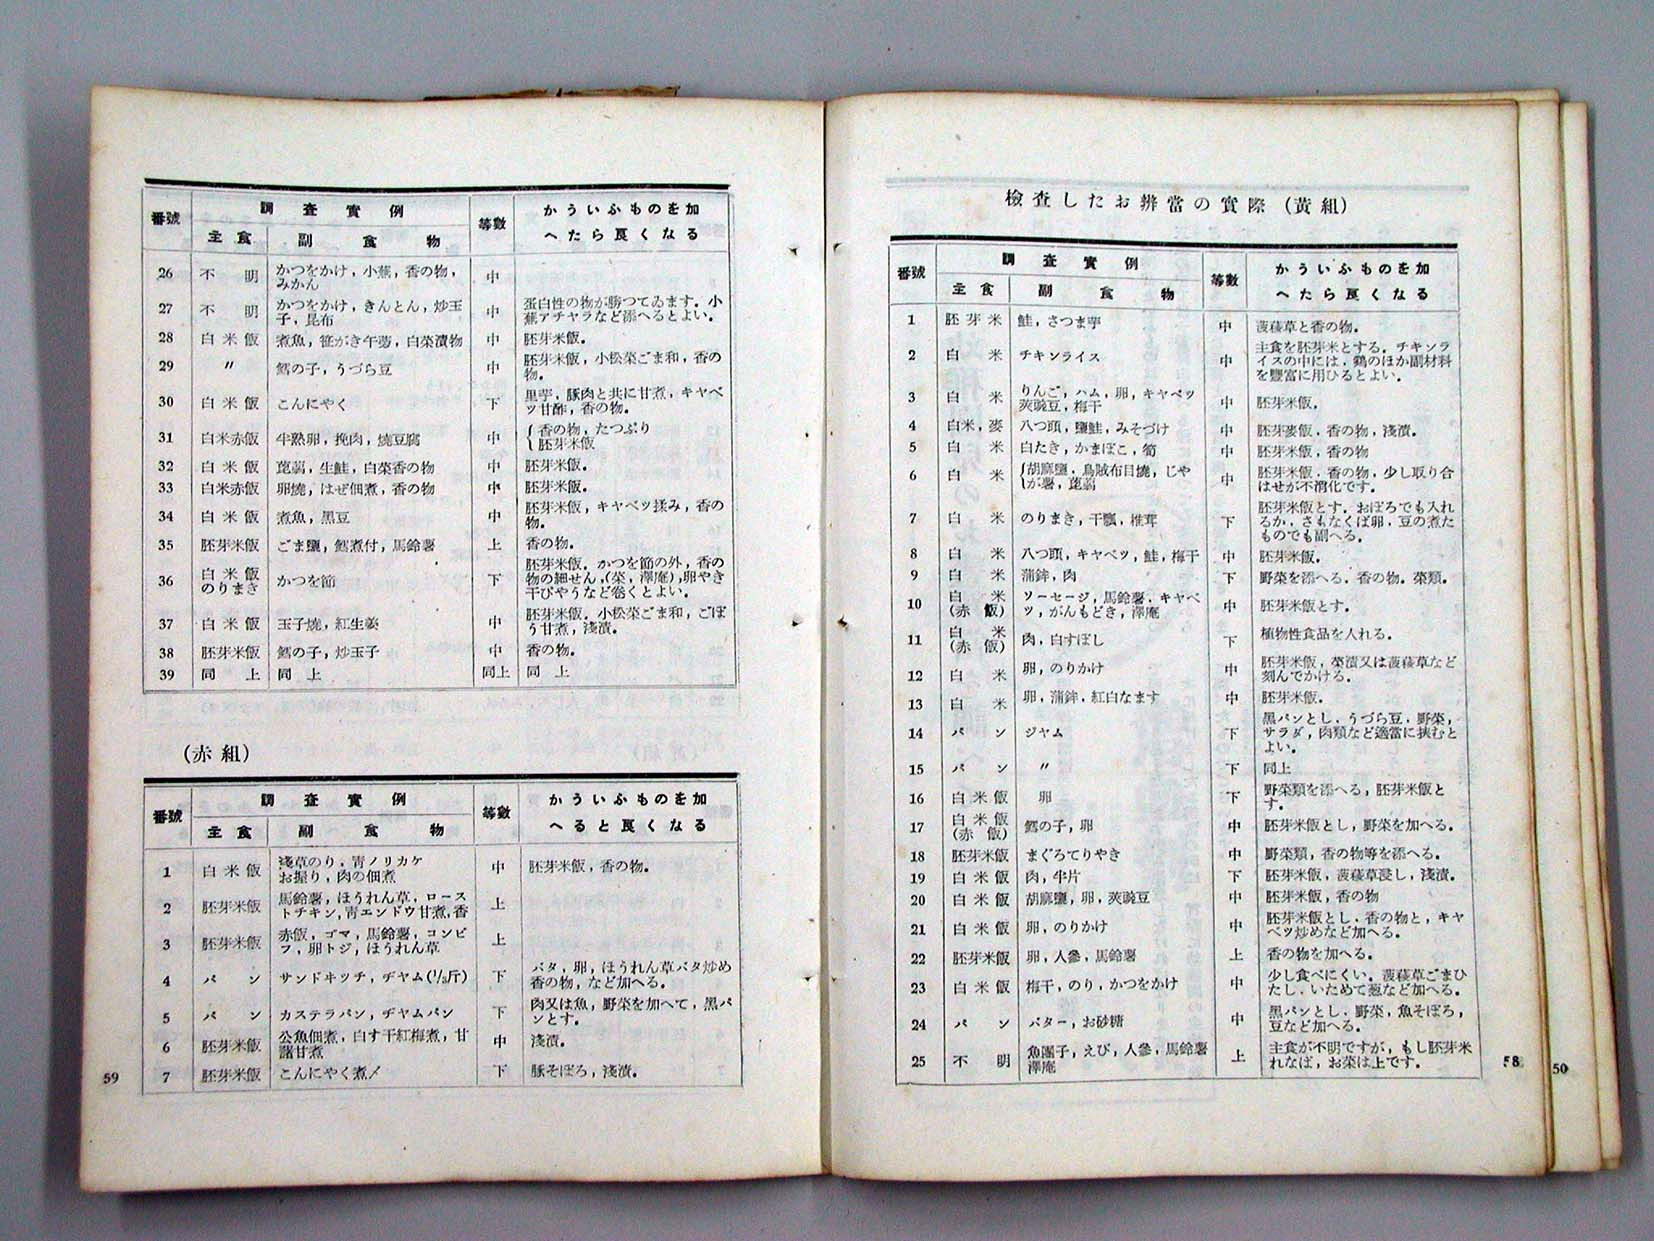 檢査したお辨當の實際 (黃組)
番號 調査實例 等數 かういふものを加へたら良くなる
主食 副食物
1 胚芽米 鮭，さつま芋 中 菠薐草と香の物。
2 白米 チキンライス 中 主食を胚芽米とする。チキンラ
イスの中には，鷄のほか副材料
を豐富に用ひるとよい。
3 白米 りんご，ハム，卵，キャベツ
莢豌豆，梅干 中 胚芽米飯．
4 白米，麥 八つ頭，鹽鮭，みそづけ 中 胚芽麥飯，香の物，淺漬。
5 白米 白たき，かまぼこ，筍 中 胚芽米飯，香の物
6 白米 胡麻鹽，烏賊布目燒，じや
が薯，蒟蒻 中 胚芽米飯．香の物，少し取り合
はせが不消化です．
7 白米 のりまき，干瓢，椎茸 下 胚芽米飯とす．おぼろでも入れ
るか，さもなくば卵，豆の煮た
ものでも副へる．
8 白米 八つ頭，キャベツ，鮭，梅干 中 胚芽米飯．
9 白米 蒲鉾，肉 下 野菜を添へる．香の物。菜類．
10 白米
(赤飯) ソーセージ，馬鈴薯．キャベ
ツ，がんもどき，澤庵 中 胚芽米飯とす．
11 白米
(赤飯) 肉，白すぼし 下 植物性食品を入れる．
12 白米 卵，のりかけ 中 胚芽米飯，菜漬又は菠薐草など
刻んでかける．
13 白米 卵，蒲鉾，紅白なます 中 胚芽米飯．
14 パン ジャム 下 黑パンとし．うづら豆．野菜，
サラダ，肉類など適當に挾むと
よい。
15 パン 〃 下 同上
16 白米飯 卵 下 野菜類を添へる，胚芽米飯と
す。
17 白米飯
(赤飯) 鱈の子，卵 中 胚芽米飯とし，野菜を加へる。
18 胚芽米飯 まぐろてりやき 中 野菜類，香の物等を添へる。
19 白米飯 肉，半片 下 胚芽米飯，菠薐草浸し，淺漬。
20 白米飯 胡麻鹽，卵，莢豌豆 中 胚芽米飯，香の物
21 白米飯 卵，のりかけ 中 胚芽米飯とし．香の物と，キャ
ベツ炒めなど加へる。
22 胚芽米飯 卵，人參，馬鈴薯 上 香の物を加へる。
23 白米飯 梅干，のり，かつをかけ 中 少し食べにくい。菠薐草ごまひ
たし．いためて葱など加へる。
24 パン バター，お砂糖 中 黑パンとし．野菜，魚そぼろ，
豆など加へる。
25 不明 魚團子，えび，人參，馬鈴薯
澤庵 上 主食が不明ですが，もし胚芽米
れなば，お菜は上です。
58
50
番號 調査實例 等數 かういふものを加へたら良くなる
主食 副食物
26 不明 かつをかけ，小蕪，香の物，
みかん 中
27 不明 かつをかけ，きんとん，炒玉
子，昆布 中 蛋白性の物が勝つてゐます．小
蕪アチヤラなど添へるとよい。
28 白米飯 煮魚，笹がき午蒡，白菜漬物 中 胚芽米飯。
29 〃 鱈の子，うづら豆 中 胚芽米飯，小松菜ごま和，香の
物。
30 白米飯 こんにやく 下 里芋，豚肉と共に甘煮，キャベ
ツ甘酢，香の物。
31 白米赤飯 半熟卵，挽肉，燒豆腐 中 香の物，たつぷり
胚芽米飯
32 白米飯 蒟蒻，生鮭，白菜香の物 中 胚芽米飯。
33 白米赤飯 卵燒，はぜ佃煮，香の物 中 胚芽米飯。
34 白米飯 煮魚，黑豆 中 胚芽米飯，キャベツ揉み，香の
物。
35 胚芽米飯 ごま鹽，鱈煮付，馬鈴薯 上 香の物。
36 白米飯
のりまき かつを節 下 胚芽米飯．かつを節の外，香の
物の細せん，(菜，澤庵)，卵やき
干ぴやうなど卷くとよい。
37 白米飯 玉子燒，紅生姜 中 胚芽米飯．小松菜ごま和，ごぼ
う甘煮，淺漬。
38 胚芽米飯 鱈の子，炒玉子 中 香の物。
39 同上 同上 同上 同上
(赤組)
番號 調査實例 等數 かういふものを加へると良くなる
主食 副食物
1 白米飯 淺草のり，靑ノリカケ
お握り，肉の佃煮 中 胚芽米飯，香の物。
2 胚芽米飯 馬鈴薯，ほうれん草，ロース
トチキン，靑エンドウ甘煮，香 上
3 胚芽米飯 赤飯，ゴマ，馬鈴薯，コンビ
フ，卵トジ，ほうれん草 上
4 パン サンドキツチ，ヂヤム(1/3斤) 下 バタ，卵，ほうれん草バタ炒め
香の物，など加へる。
5 パン カステラパン，ヂヤムパン 下 肉又は魚，野菜を加へて，黑パ
ンとす。
6 胚芽米飯 公魚佃煮，白す干紅梅煮，甘
藷甘煮 中 淺漬。
7 胚芽米飯 こんにやく煮〆 下 豚そぼろ，淺漬。
59